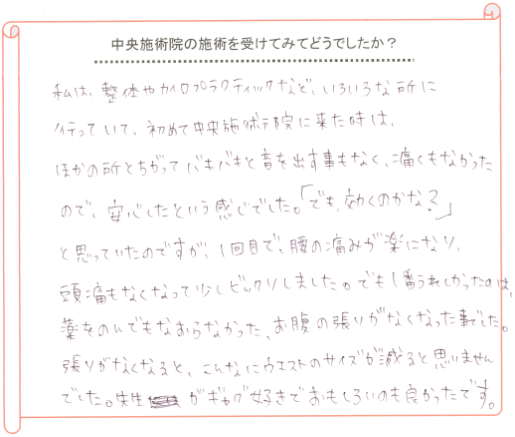 中央施術院の施術を受けてみてどうでしたか？
私は、整体やカイロプラクティックなど、いろいろな所に
行っていて、初めて中央施術院に来た時は、
ほかの所とちがってバキバキと音を出す事もなく、痛くもなかった
ので、安心したという感じでした。「でも、効くのかな？」
と思っていたのですが、1回目で、腰の痛みが楽になり、
頭痛もなくなって少しビックリしました。でも1番うれしかったのは、
薬をのんでもなおらなかった、お腹の張りがなくなった事でした。
張りがなくなると、こんなにウエストのサイズが減ると思いません
でした。先生がギャグ好きでおもしろいのも良かったです。